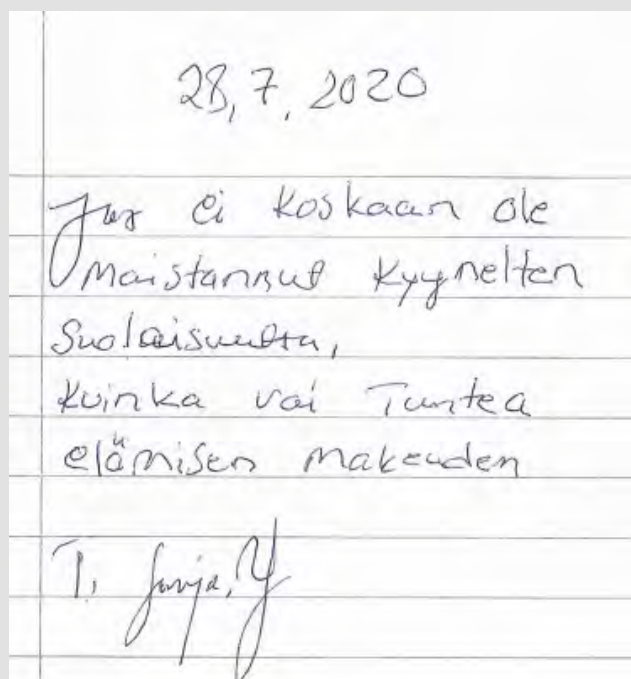 28,7,2020
Jos ei koskaan ole
maistannut kyynelten
suolaisuutta,
kuinka voi Tuntea
elämisen makeuden
T.